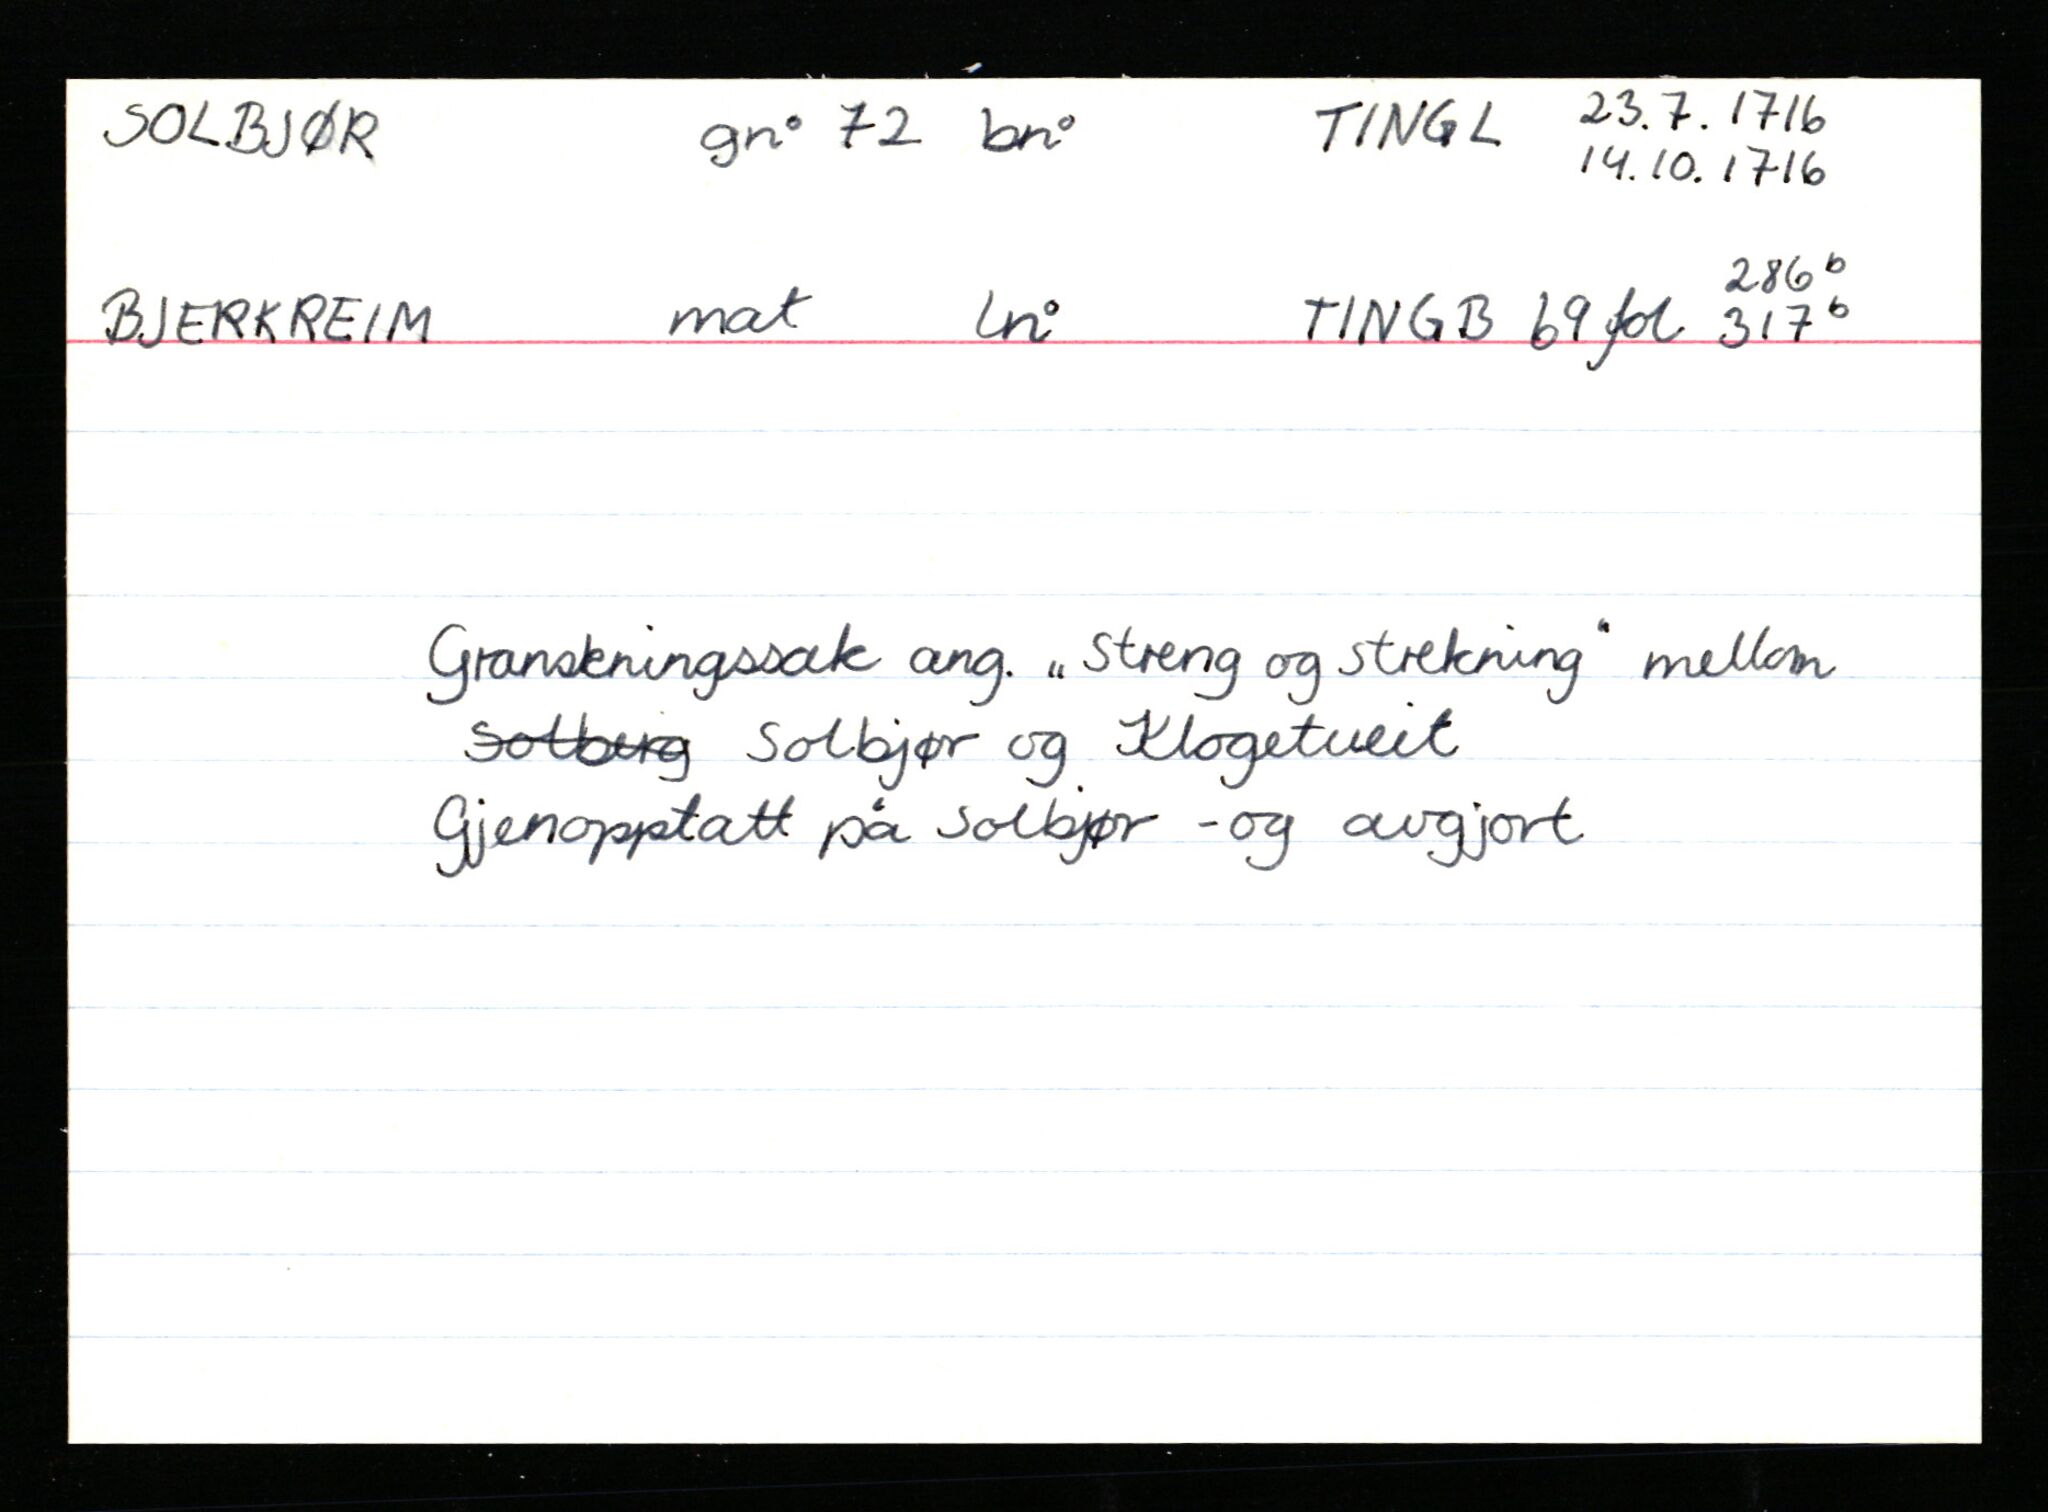 SOLBJØR gn° 72 bn° TINGL 23.7.1716
14.10.1716
286b
BJERKREIM mat ln° TINGB 69 fol 317b
Granskningssak ang. „Streng og strekning“ mellom
Solberg Solbjør og Klogetveit
Gjenopptatt på Solbjør - og avgjort